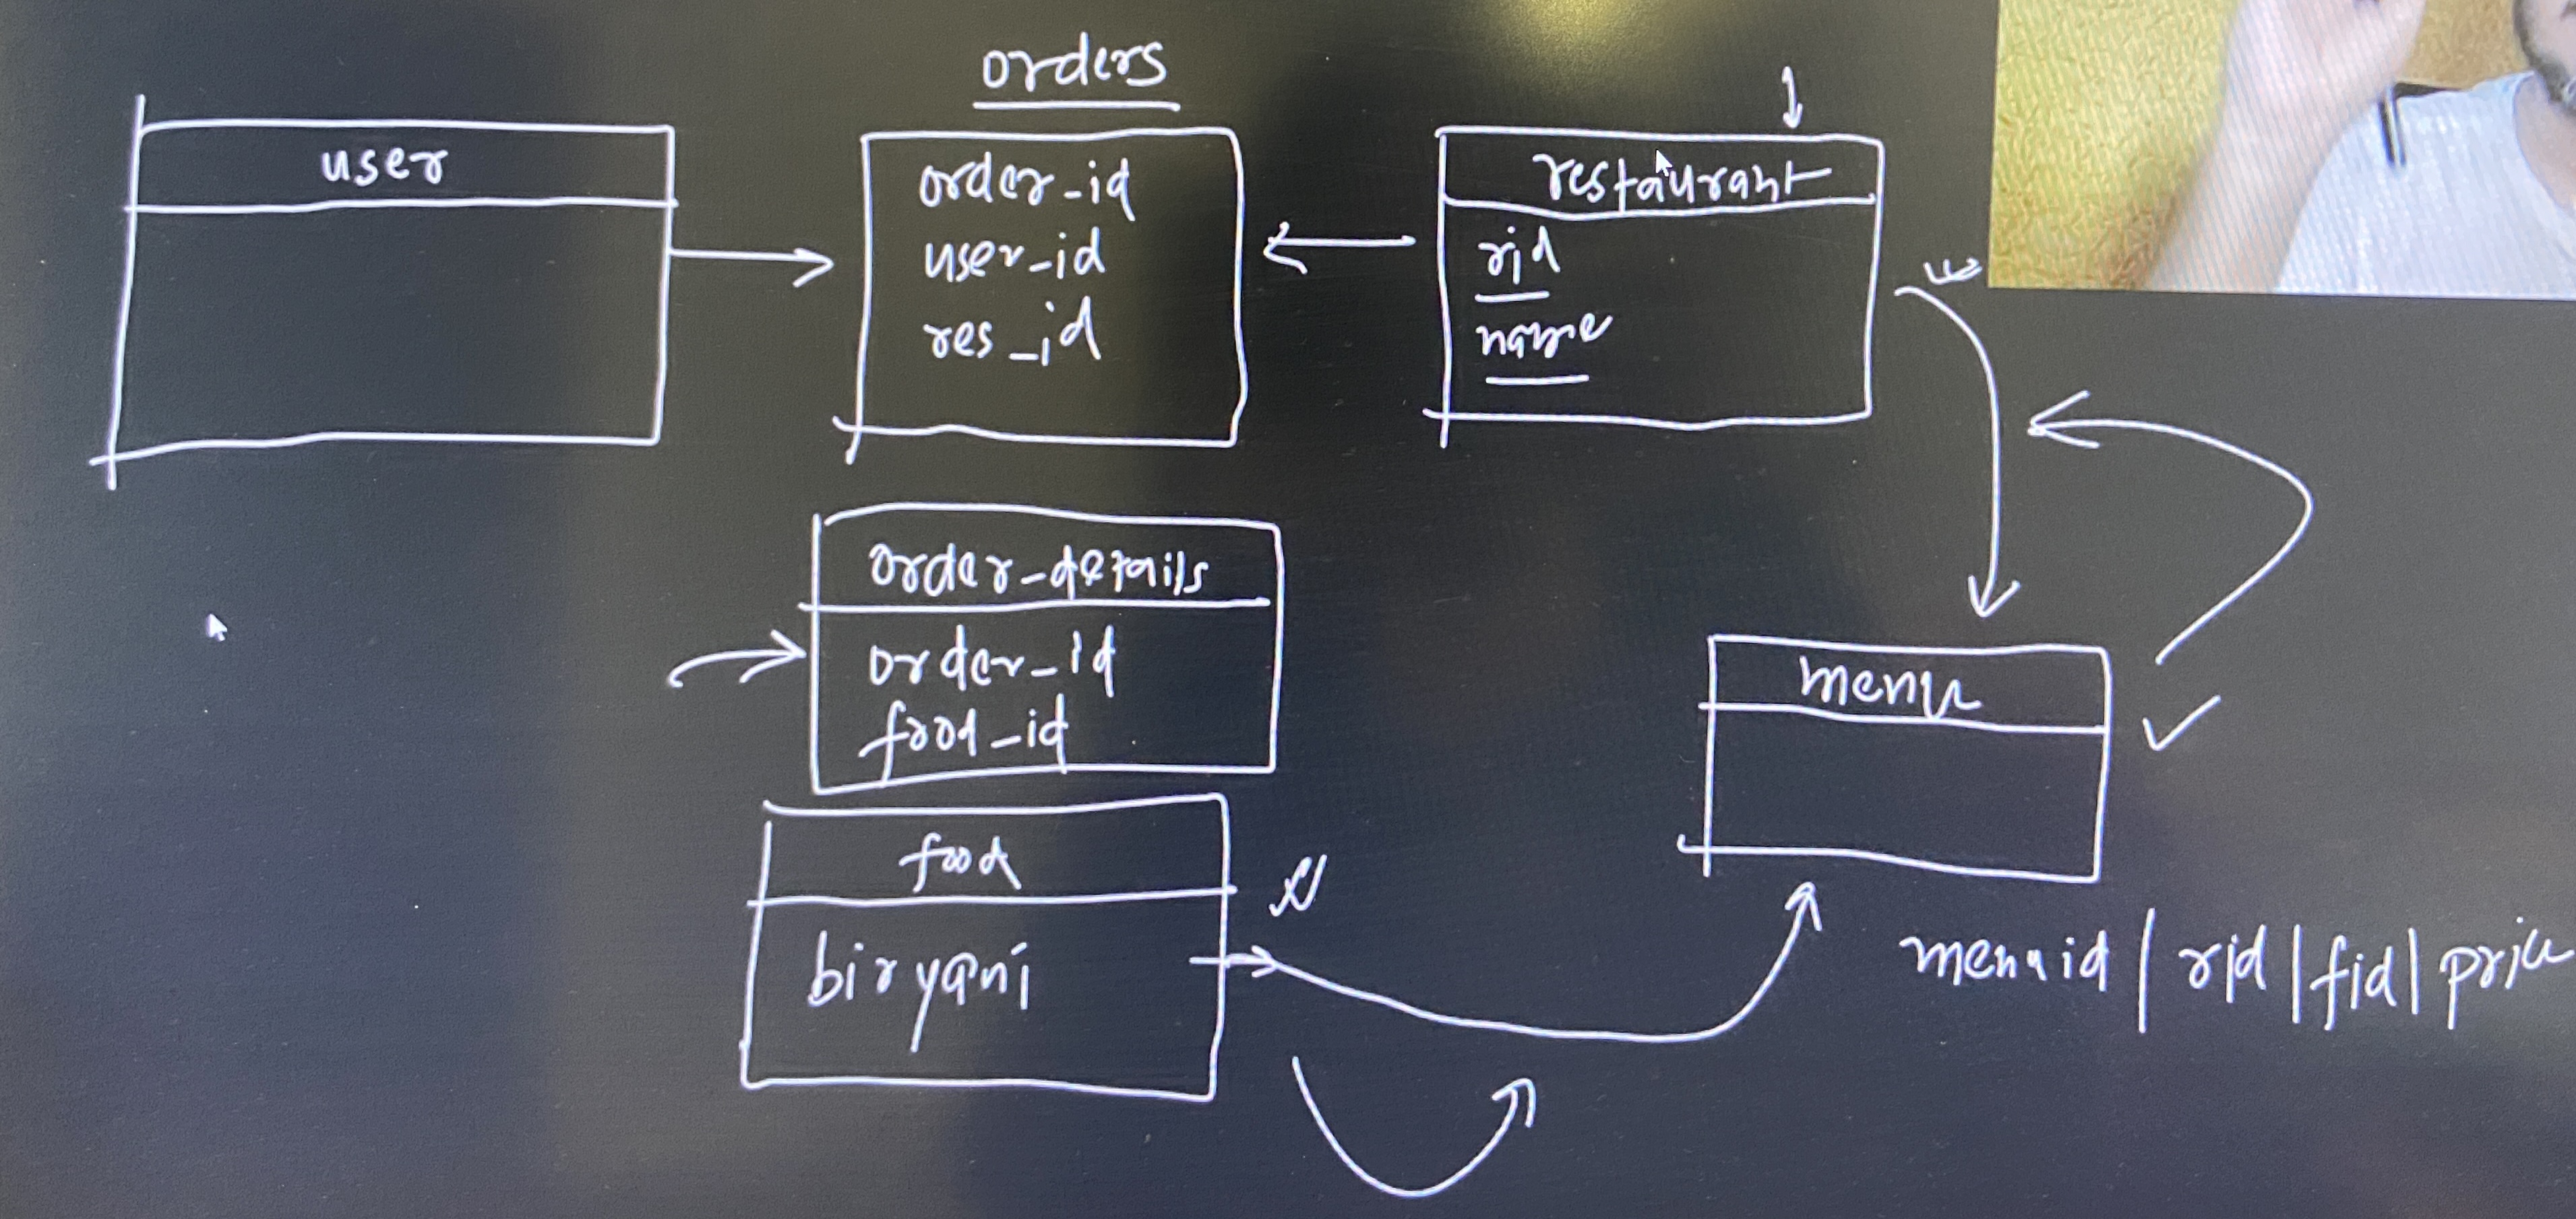 orders
user
order_id
user_id
res_id
restaurant
rid
name
order_details
order_id
food_id
food
biryani
menu
menuid | rid | fid | price